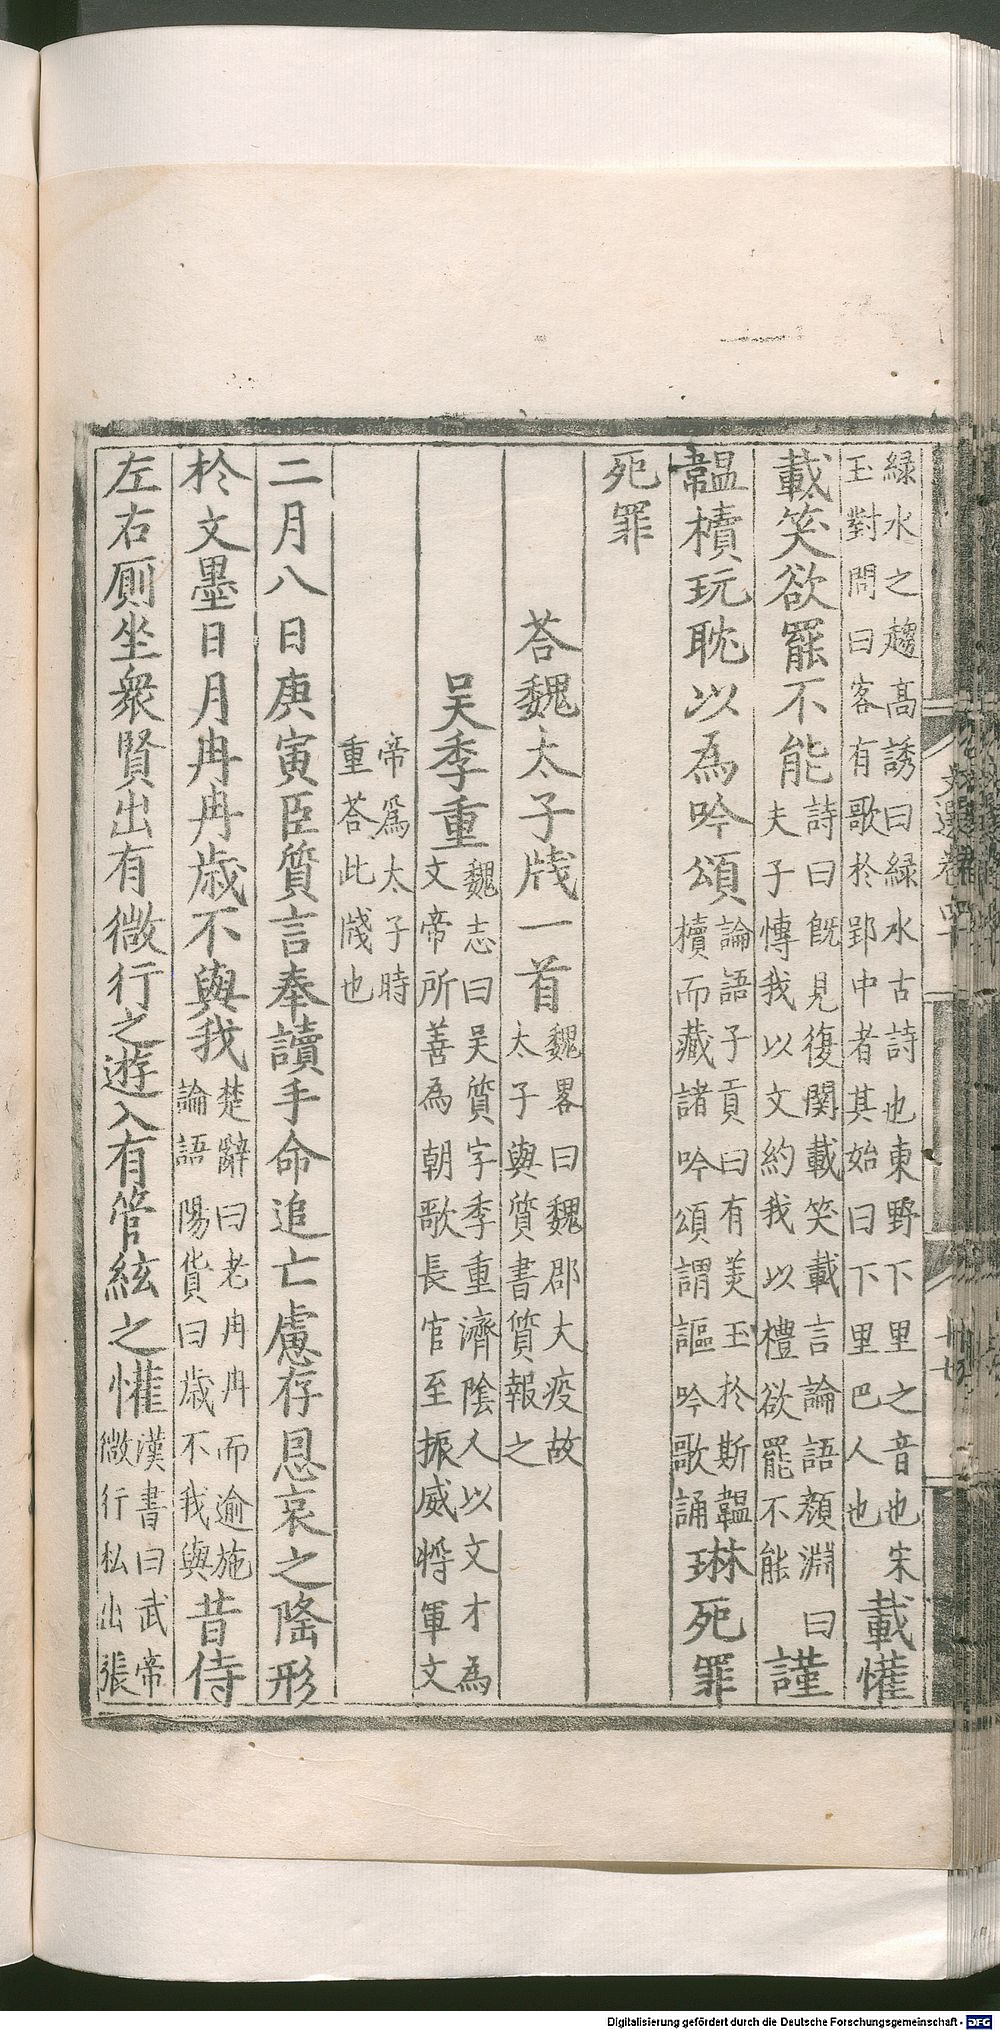 緑水之趨髙誘曰緑水古詩也東野下里之音也宋
玉對問曰客有歌於郢中者其始曰下里巴人也
載懽
載笑欲罷不能
詩曰旣見復関載笑載言論語顔淵曰
夫子慱我以文約我以禮欲罷不能
謹
韞櫝玩耽以為吟頌
論語子貢曰有美玉於斯韞
櫝而藏諸吟頌謂謳吟歌誦
琳死罪
死罪
荅魏太子牋一首
魏畧曰魏郡大疫故
太子與質書質報之
吴季重
魏志曰吴質字季重濟隂人以文才為
文帝所善為朝歌長官至振威将軍文
帝爲太子時
重荅此牋也
二月八日庚寅臣質言奉讀手命追亡慮存恩哀之隆形
於文墨日月冉冉歳不與我
楚辭曰老冉冉而逾施
論語陽貨曰歳不我與
昔侍
左右厠坐衆賢出有微行之遊入有管絃之懽
漢書曰武帝
微行私出張
文選卷四十
Digitalisierung gefördert durch die Deutsche Forschungsgemeinschaft - DFG